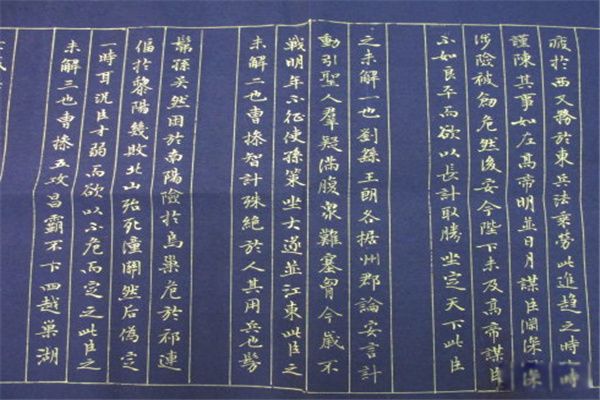 疲於西又務於東兵法乘勞此進趨之時
謹陳其事如左高帝明並日月謀臣淵深
涉險被創危然後安今陛下未及高帝謀臣
不如良平而欲以長計取勝坐定天下此臣
之未解一也劉繇王朗各據州郡論安言計
動引聖人羣疑滿腹衆難塞胷今歲不
戰明年不征使孫策坐大遂並江東此臣之
未解二也曹操智計殊絕於人其用兵也髣
髴孫吳然困於南陽險於烏巢危於祁連
偪於黎陽幾敗北山殆死潼關然后偽定
一時耳況臣才弱而欲以不危而定之此臣之
未解三也曹操五攻昌霸不下四越巢湖